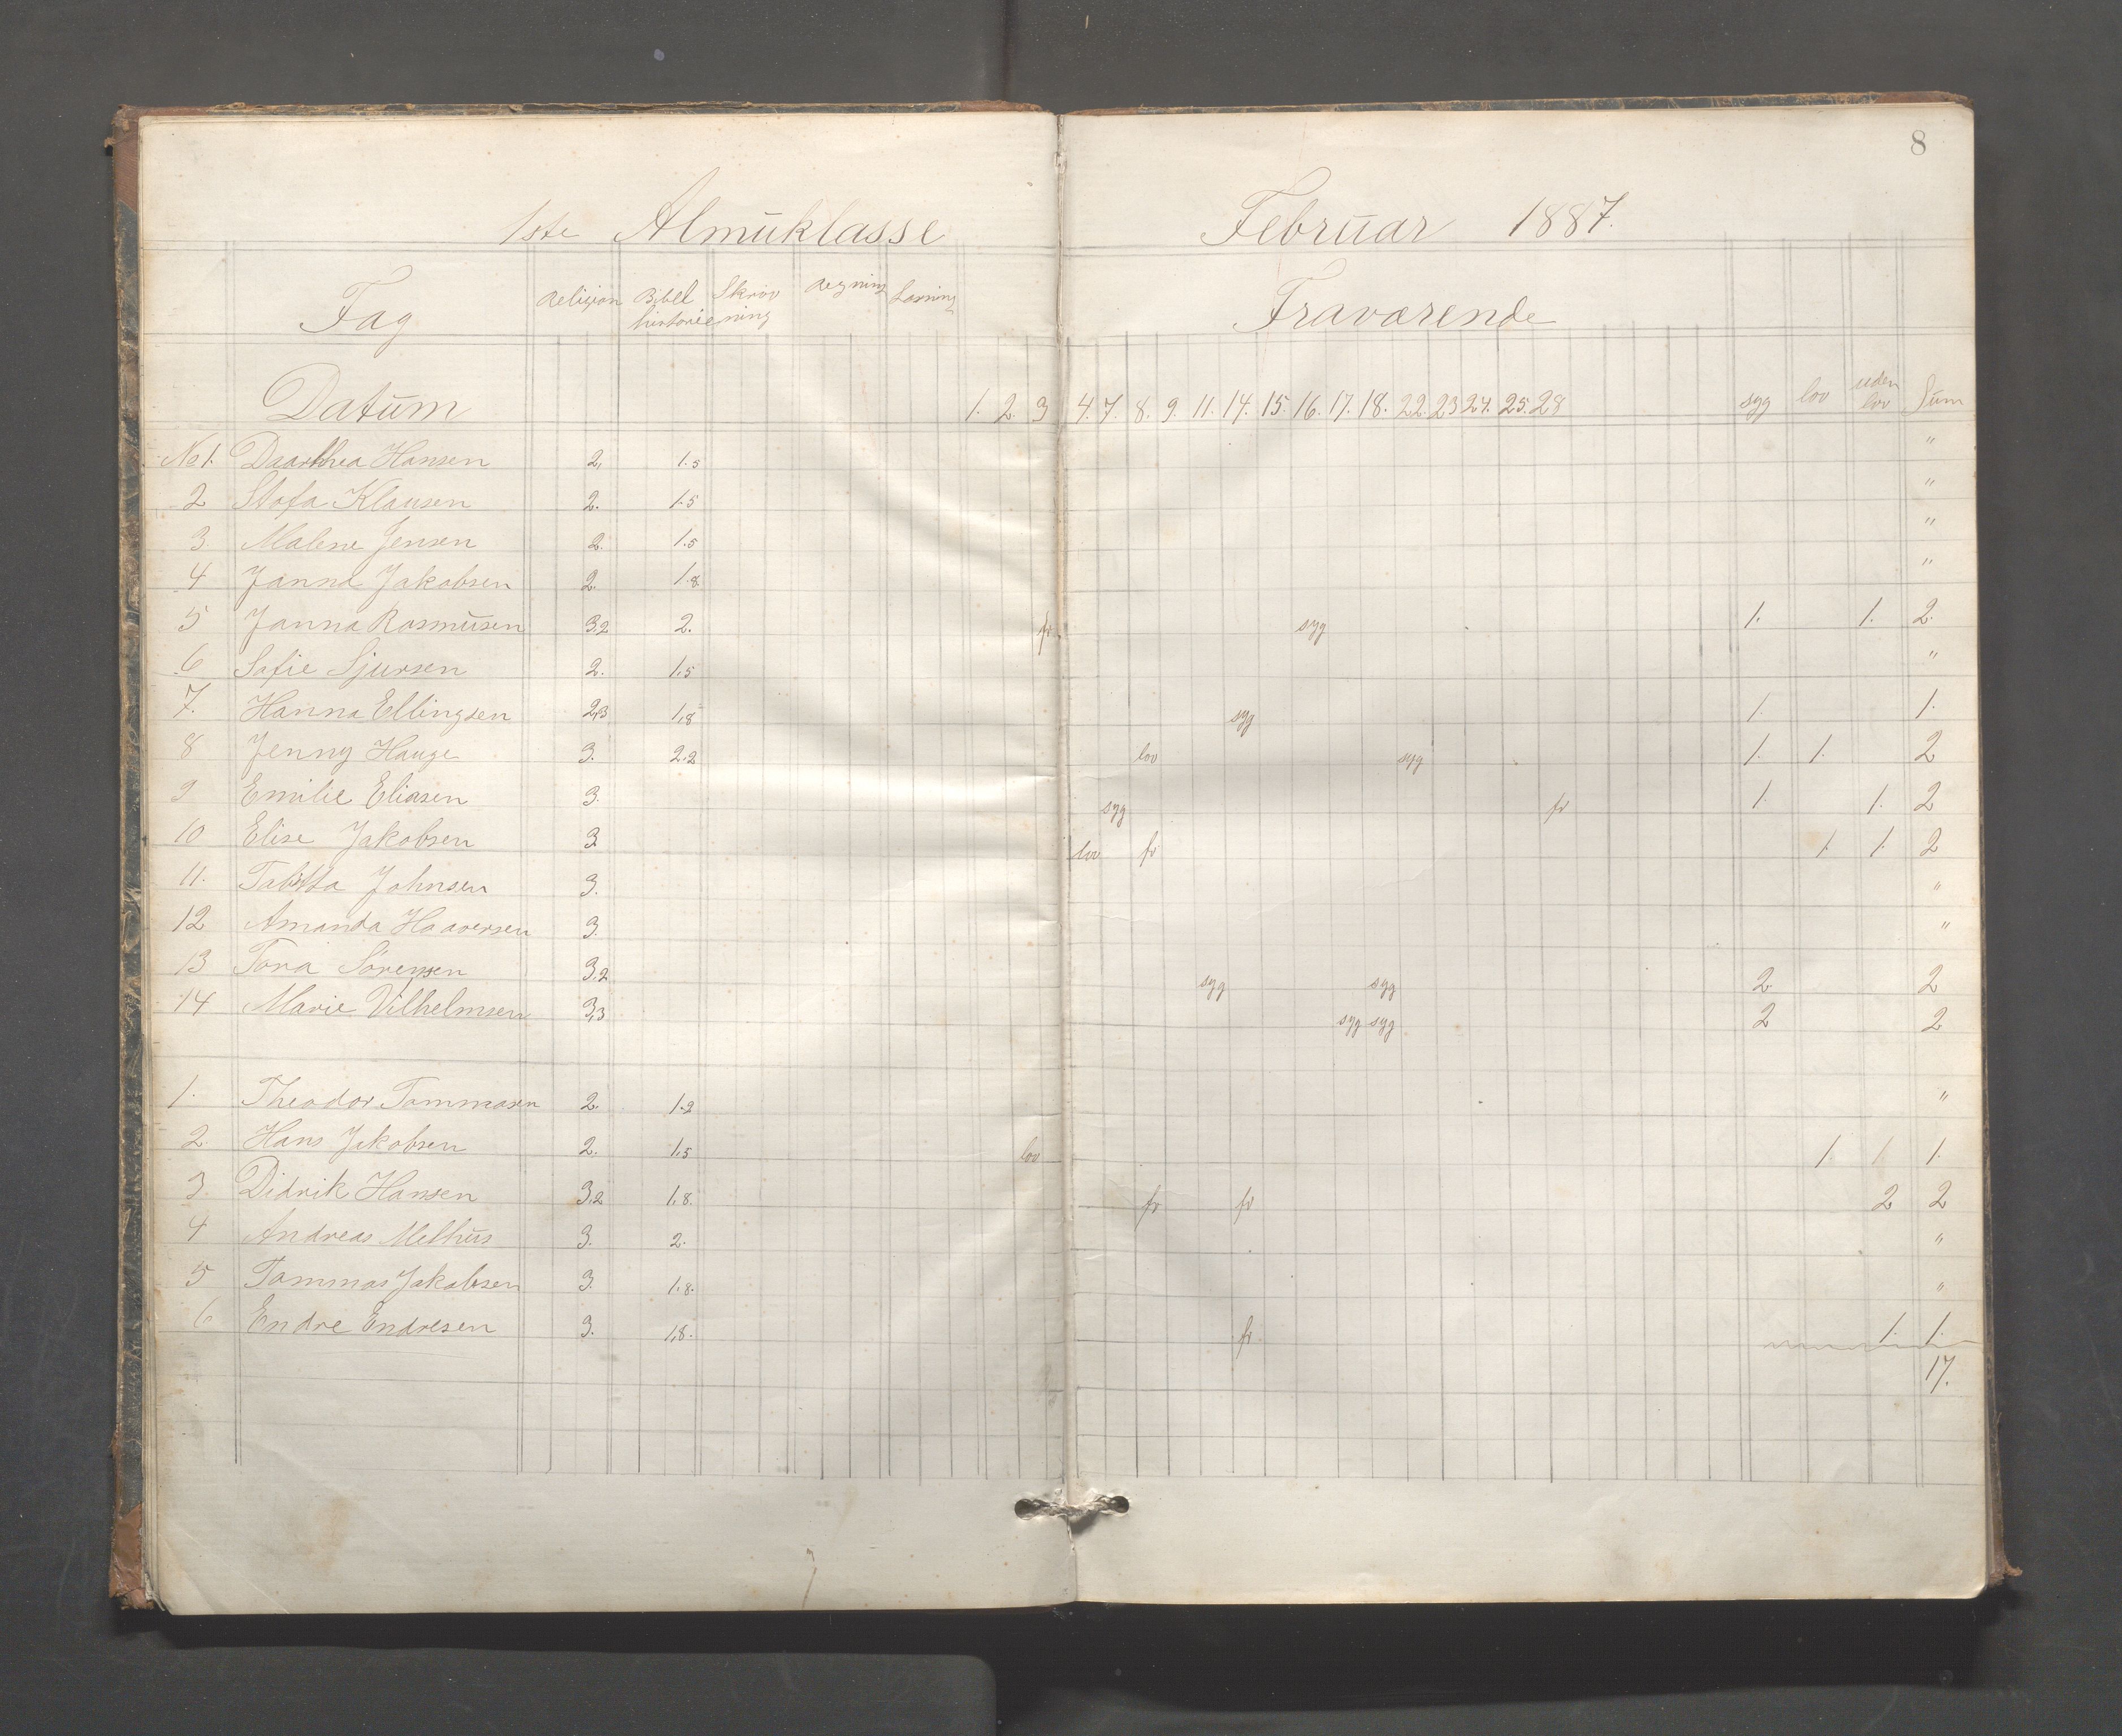 8
1ste Almuklasse Februar 1887.
Fag Religion Bibel historie Skrivning Regning Læsning Fraværende
Datum 1. 2. 3 4. 7. 8. 9. 11. 14. 15. 16. 17. 18. 22. 23 24. 25. 28 syg lov uden lov Sum
No 1. Daarthea Hansen 2. 1.5 "
2 Klausen 2. 1.5 "
3 Malene Jensen 2. 1.5 "
4 Janna Jakobsen 2. 1.8 "
5 Janna Rasmusen 3.2 2. fr syg 1. 1. 2.
6 Sofie Sjursen 2. 1.5 "
7. Hanna Ellingsen 2,3 1,8 syg 1. 1.
8 Jenny Hauge 3. 2.2 lov syg 1. 1. 2
9 Emilie Eliasen 3. syg fr 1. 1. 2
10 Elise Jakobsen 3 lov fr 1. 1. 2
11. Tabitta Johnsen 3. "
12 Amanda Haaversen 3. "
13 Tora Sørensen 3.2 syg syg 2 2
14 Marie Vilhelmsen 3,3 syg syg 2 2
1. Theodor Tommasen 2. 1.2 "
2. Hans Jakobsen 2. 1,5 lov 1. 1 1.
3. Didrik Hansen 3,2 1,8. fr fr 2 2
4 Andreas Melhus 3. 2. "
5 Tommas Jakobsen 3. 1.8. "
6 Endre Endresen 3. 1,8. fr 1. 1.
17.